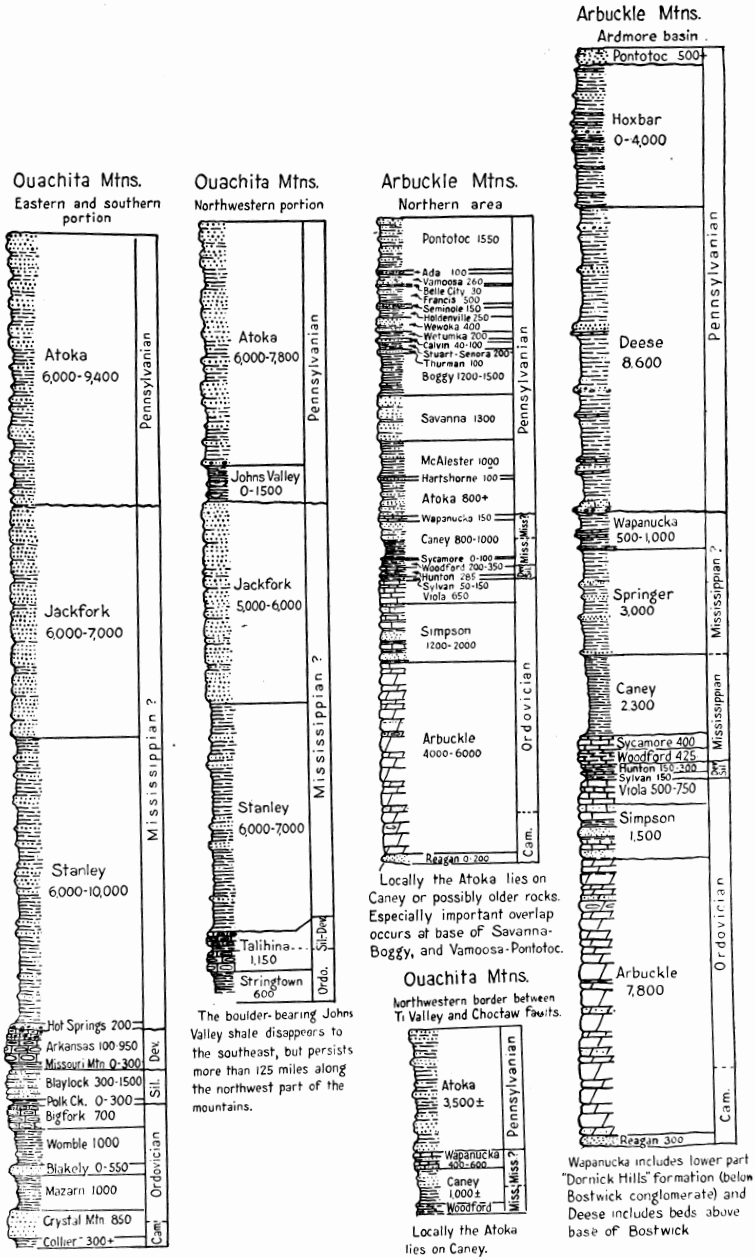 Ouachita Mtns.
Eastern and southern
portion
Atoka
6,000-9,400
Jackfork
6,000-7,000
Stanley
6,000-10,000
Hot Springs 200
Arkansas 100-950
Missouri Mtn 0-300
Blaylock 300-1500
Polk Ck. 0-300
Bigfork 700
Womble 1000
Blakely 0-550
Mazarn 1000
Crystal Mtn 850
Collier 300+
Pennsylvanian
Mississippian ?
Dev.
Sil.
Ordovician
Cam.
Ouachita Mtns.
Northwestern portion
Atoka
6,000-7,800
Johns Valley
0-1500
Jackfork
5,000-6,000
Stanley
6,000-7,000
Talihina
1,150
Stringtown
600
Pennsylvanian
Mississippian ?
Sil-Dev.
Ordo.
The boulder-bearing Johns
Valley shale disappears to
the southeast, but persists
more than 125 miles along
the northwest part of the
mountains.
Arbuckle Mtns.
Northern area
Pontotoc 1550
Ada 100
Vamoosa 260
Belle City 30
Francis 500
Seminole 150
Holdenville 250
Wewoka 400
Wetumka 200
Calvin 40-100
Stuart-Senora 200
Thurman 100
Boggy 1200-1500
Savanna 1300
McAlester 1000
Hartshorne 100
Atoka 800+
Wapanucka 150
Caney 800-1000
Sycamore 0-100
Woodford 200-350
Hunton 285
Sylvan 50-150
Viola 650
Simpson
1200-2000
Arbuckle
4000-6000
Reagan 0-200
Pennsylvanian
Miss?
Miss.
Sil.
Ordovician
Cam.
Locally the Atoka lies on
Caney or possibly older rocks.
Especially important overlap
occurs at base of Savanna-
Boggy, and Vamoosa-Pontotoc.
Ouachita Mtns.
Northwestern border between
Ti Valley and Choctaw faults.
Atoka
3,500±
Wapanucka
400-600
Caney
1,000±
Woodford
Pennsylvanian
Miss.?
Miss.
Locally the Atoka
lies on Caney.
Arbuckle Mtns.
Ardmore basin
Pontotoc 500+
Hoxbar
0-4,000
Deese
8,600
Wapanucka
500-1,000
Springer
3,000
Caney
2,300
Sycamore 400
Woodford 425
Hunton 150-300
Sylvan 150
Viola 500-750
Simpson
1,500
Arbuckle
7,800
Reagan 300
Pennsylvanian
Mississippian ?
Mississippian
Dev.
Sil.
Ordovician
Cam.
Wapanucka includes lower part
"Dornick Hills" formation (below
Bostwick conglomerate) and
Deese includes beds above
base of Bostwick